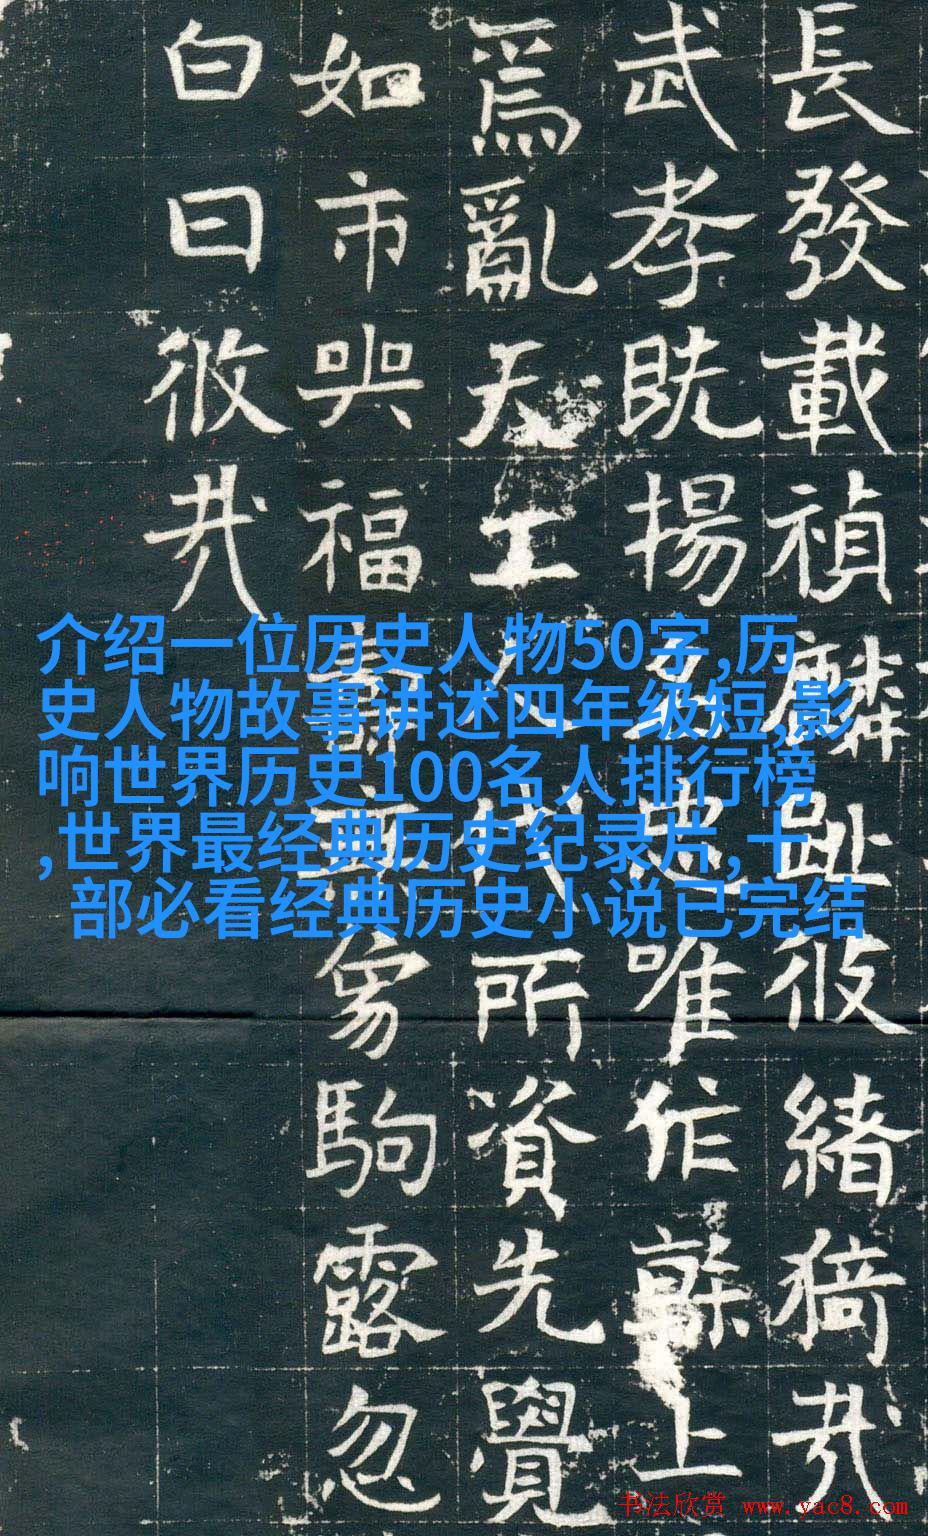 長發載禎麟趾緒猗哉
武孝既揚名唯作上
爲亂天工人代所資先覺
如市與福壽駒露忽
白日哉
介绍一位历史人物50字,历
史人物故事讲述四年级短,影
响世界历史100名人排行榜
,世界最经典历史纪录片,十
部必看经典历史小说已完结
书法欣赏 www.yac8.com